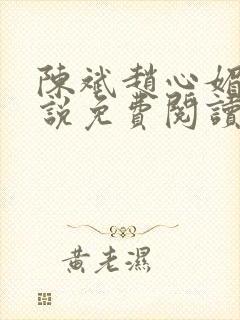 陳斌趙心媚
說免費閱讀
黃老濕